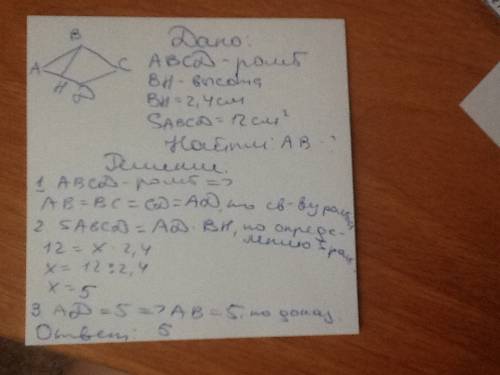 B
Дано:
A
C
ABCD - ромб
H
D
BH - высота
BH = 2,4 см
SABCD = 12 см²
Найти: AB - ?
Решение.
1 ABCD - ромб =>
AB = BC = CD = AD, по св-ву ромба
2 SABCD = AD · BH, по опреде-
лению Sром.
12 = x · 2,4
x = 12 : 2,4
x = 5
3 AD = 5 => AB = 5. по доказ.
Ответ: 5